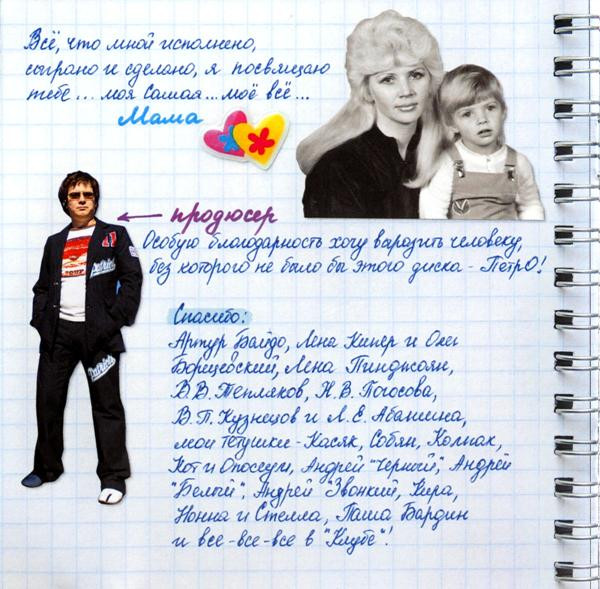 Всё, что мной исполнено,
сыграно и сделано, я посвящаю
тебе... моя Самая... моё всё...
Мама
продюсер
Особую благодарность хочу выразить человеку,
без которого не было бы этого диска - ПетрО!
Спасибо:
Артур Байдо, Лена Кипер и Олег
Борщевский, Лена Пинджоян,
В.В.Тепляков, Н.В.Погосова,
В.П.Кузнецов и Л.Е.Абашина,
мои Тётушки - Касяк, Собян, Колпак,
Кот и Опоссум, Андрей "Черный", Андрей
"Белый", Андрей "Звонкий, Кира,
Нонна и Стелла, Паша Бардин
и все-все-все в "Клубе"!